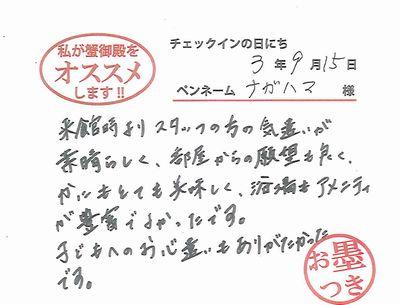 私が蟹御殿を
オススメ
します!!
チェックインの日にち
3年9月15日
ペンネーム ナガハマ 様
来館時よりスタッフの方の気遣いが
素晴らしく、部屋からの願望も良く、
かにもとても美味しく、浴場もアメニティ
が豊富でよかったです。
子どもへのお心遣いもありがたかった
です。
お墨
つき